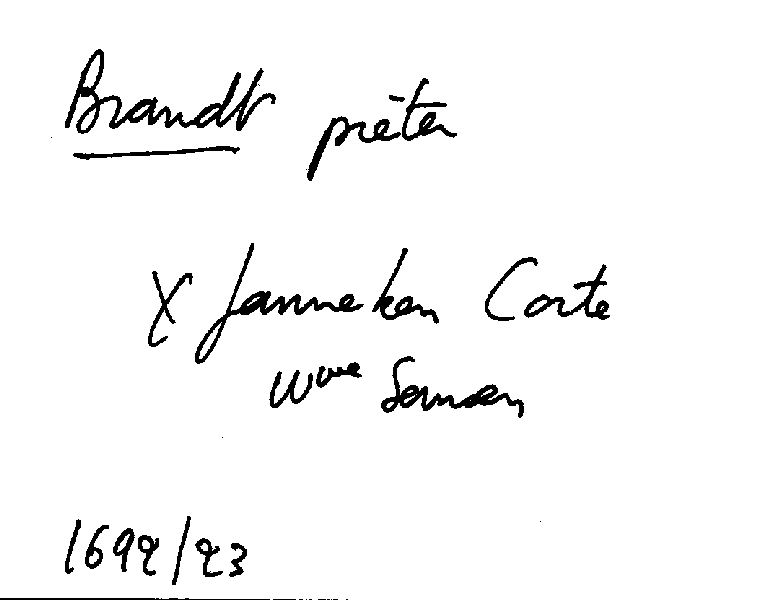 Brandt pieter
X Janneken Corte
Wwe Jansen
1692/23